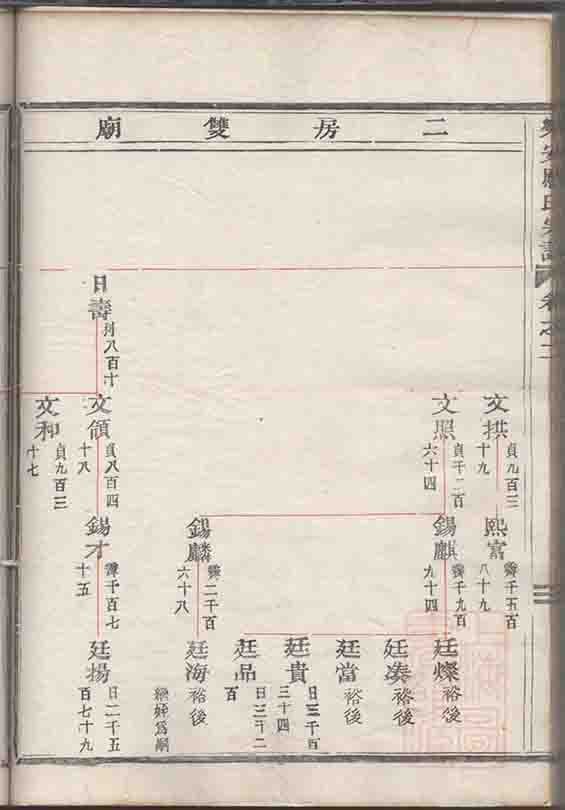 二房雙廟
卷之二
文拱
貞九百三
十九
熙富
霽千五百
八十九
文照
貞千二百
六十四
錫麒
霽千九百
九十四
廷燦
裕後
廷湊
裕後
廷當
裕後
廷貴
日三千百
三十四
廷品
日三千二
百
錫麟
霽二千百
六十八
廷海
裕後
日壽
利八百十
文頜
貞八百四
十八
錫才
霽千百七
十五
廷揚
日二千五
百七十九
文和
貞九百三
十七